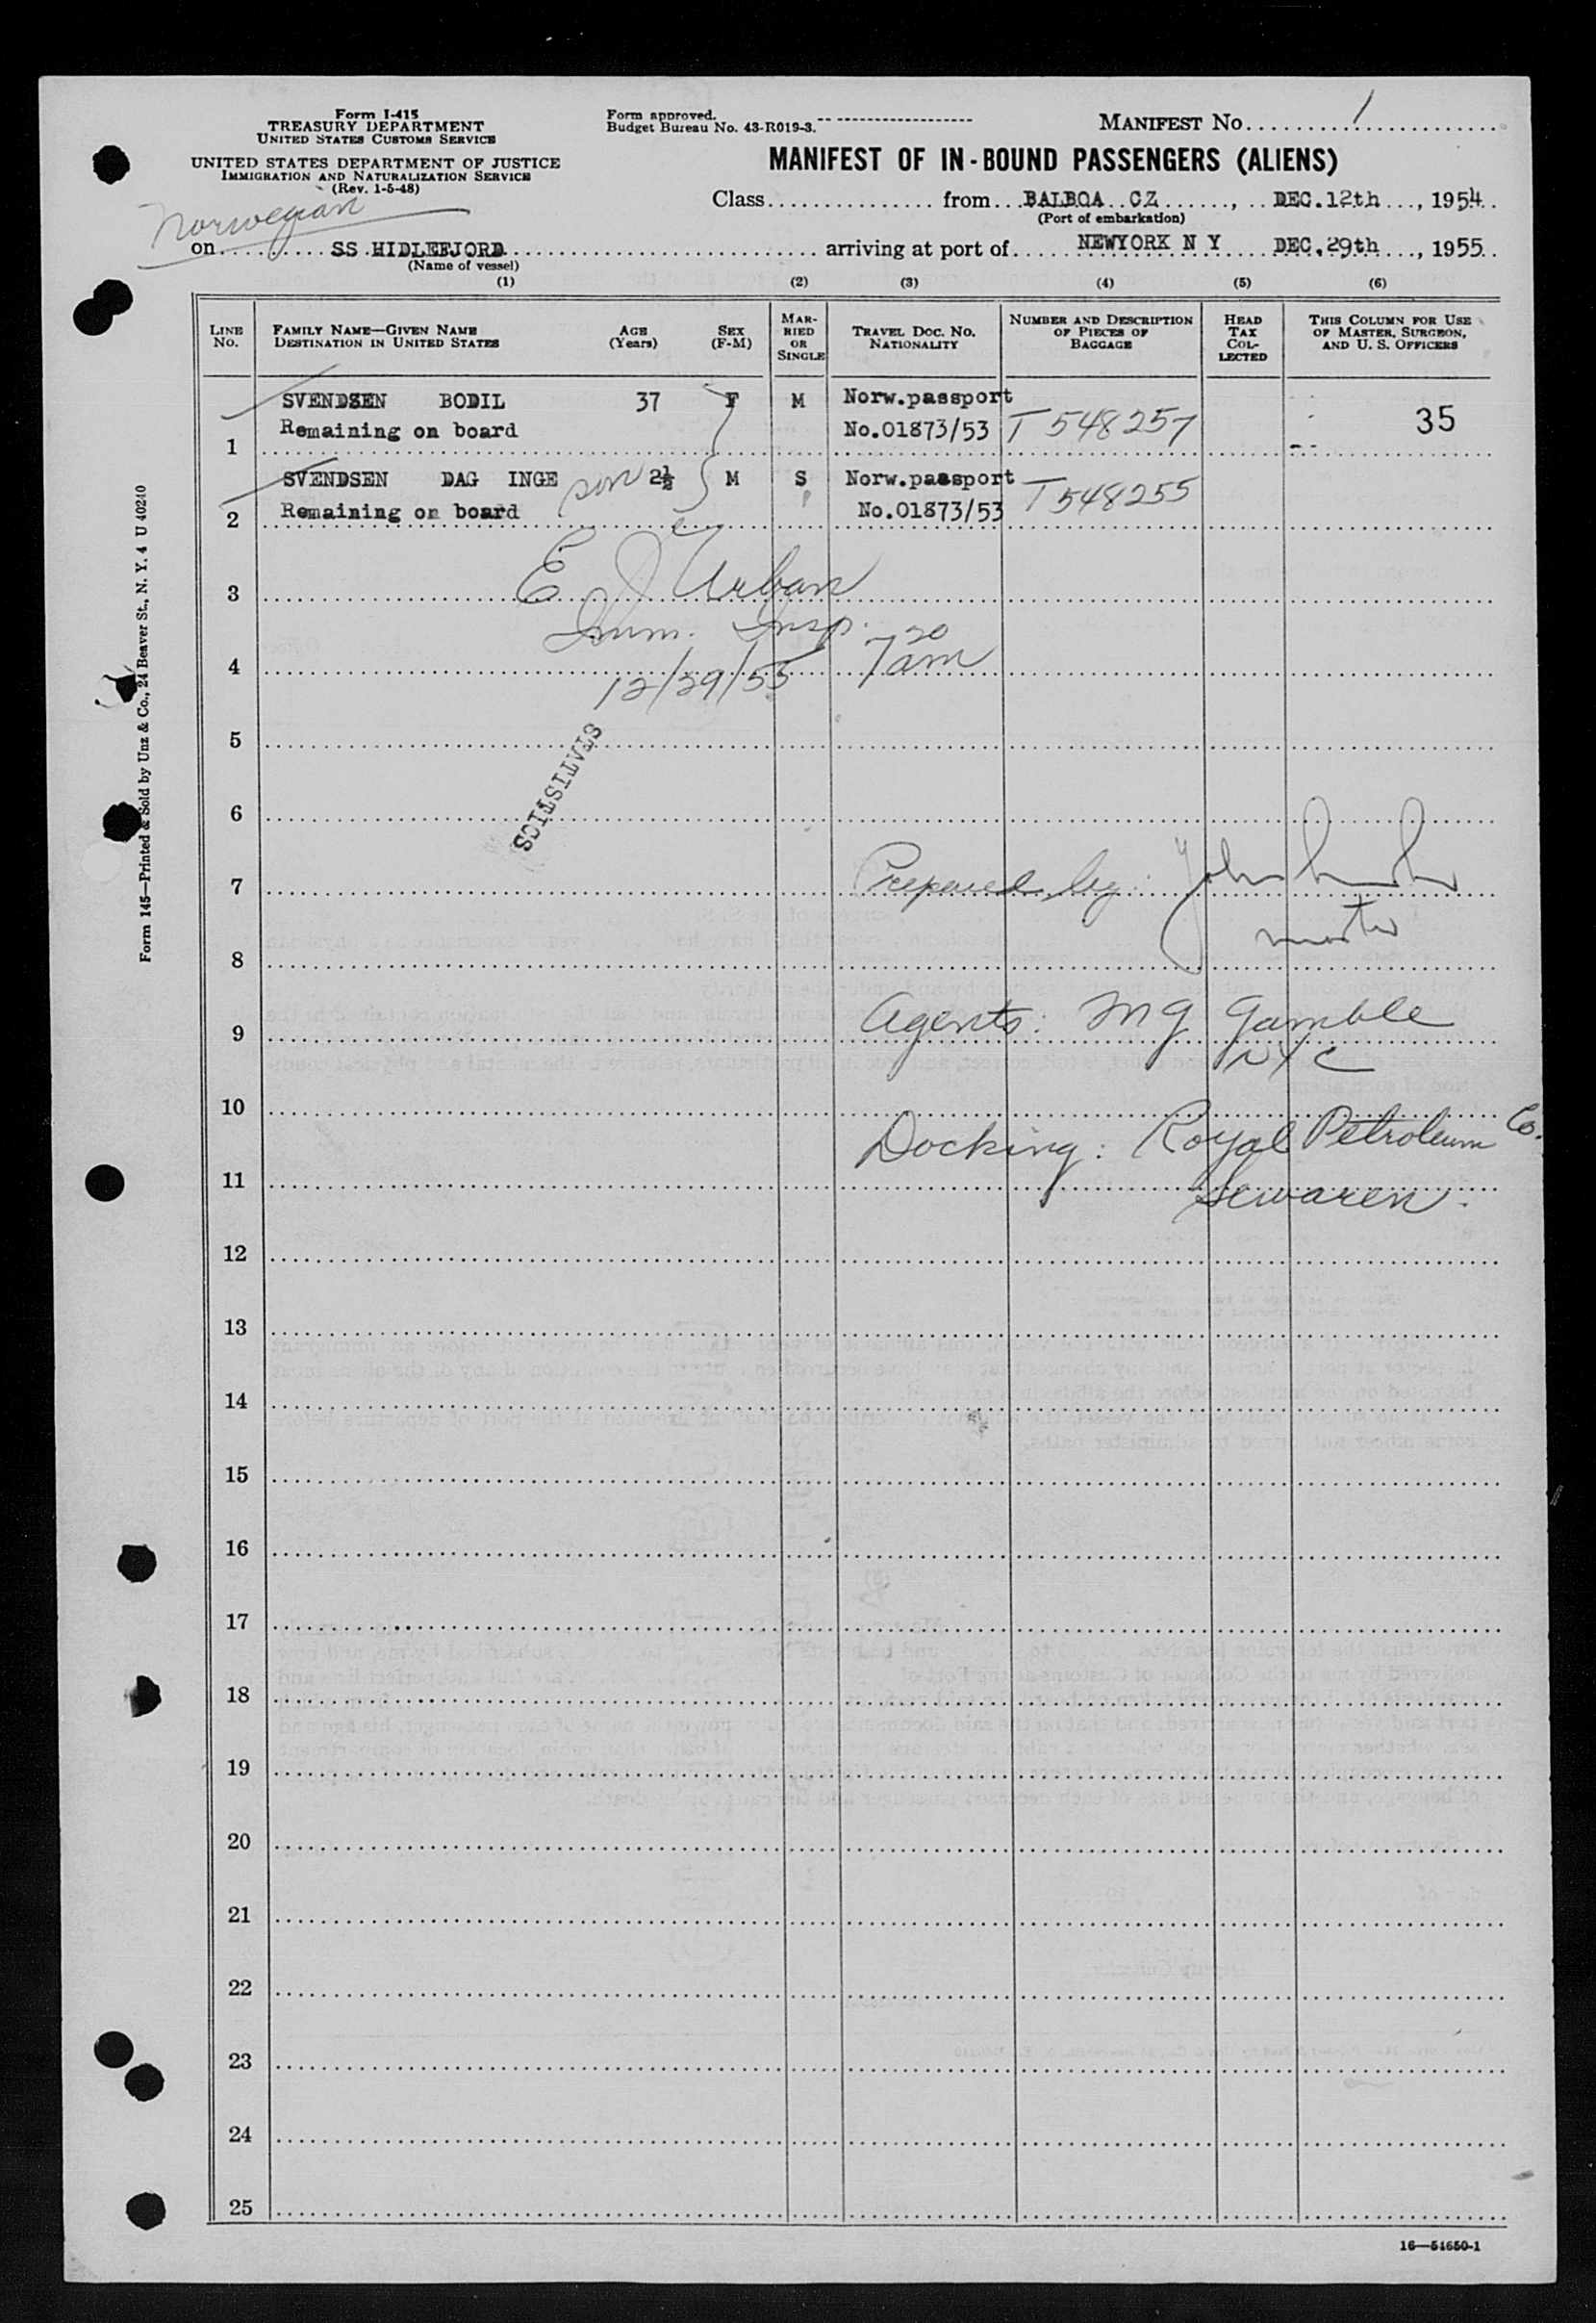 Form I-415
TREASURY DEPARTMENT
UNITED STATES CUSTOMS SERVICE
UNITED STATES DEPARTMENT OF JUSTICE
IMMIGRATION AND NATURALIZATION SERVICE
(Rev. 1-5-48)
Form approved.
Budget Bureau No. 43-R019-3.
MANIFEST No. 1
MANIFEST OF IN-BOUND PASSENGERS (ALIENS)
Class from BALBOA CZ, DEC.12th, 1954
(Port of embarkation)
Norwegian
on SS HIDLEFJORD arriving at port of NEWYORK N Y DEC.29th, 1955
(Name of vessel)
(1) (2) (3) (4) (5) (6)
LINE No.
FAMILY NAME—GIVEN NAME
DESTINATION IN UNITED STATES
AGE (Years)
SEX (F-M)
MARRIED OR SINGLE
TRAVEL DOC. NO. NATIONALITY
NUMBER AND DESCRIPTION OF PIECES OF BAGGAGE
HEAD TAX COLLECTED
THIS COLUMN FOR USE OF MASTER, SURGEON, AND U. S. OFFICERS
SVENDSEN BODIL 37 F M Norw.passport
1 Remaining on board No.01873/53 T 548257 35
SVENDSEN DAG INGE son 2½ M S Norw.passport
2 Remaining on board No.01873/53 T548255
3 E J Urban
Imm. Insp.
4 12/29/55 7 20 am
5
STATISTICS
6
7 Prepared by: John
master
8
9 Agents: M G Gamble
NYC
10
Docking: Royal Petroleum Co.
11 Sewaren.
12
13
14
15
16
17
18
19
20
21
22
23
24
25
16—54650-1
Form 145—Printed & Sold by Unz & Co., 24 Beaver St., N. Y. 4 U 40240